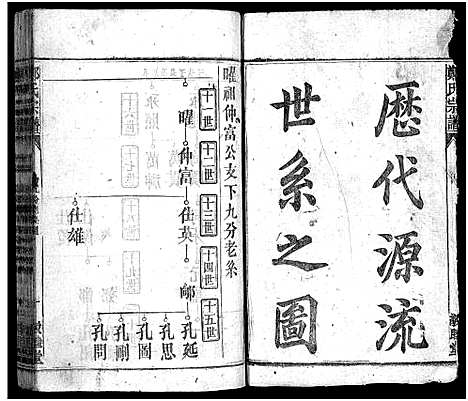 鄭氏宗譜
歷代源流
世系之圖
曜祖仲富公支下九分老系
十一世
十二世
十三世
十四世
十五世
曜
仲富
仕英
仕雄
鄊
孔延
孔思
孔圖
孔剛
孔問